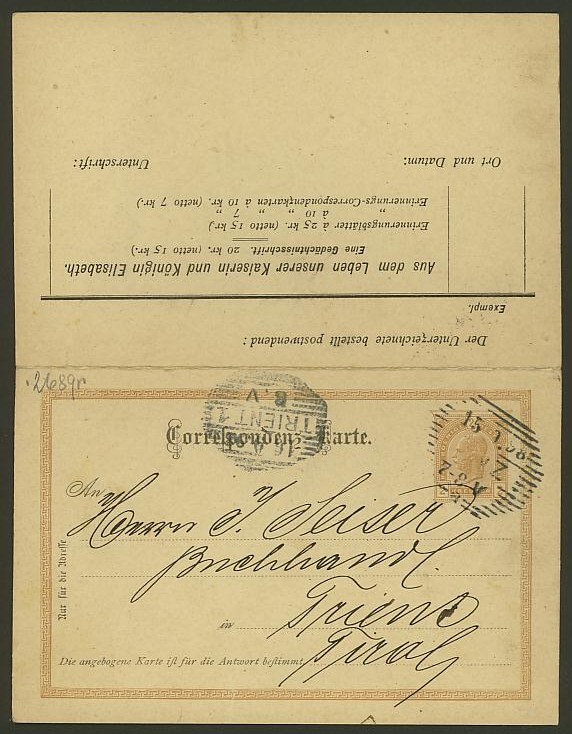 Der Unterzeichnete bestellt postwendend:
Exempl.
Aus dem Leben unserer Kaiserin und Königin Elisabeth.
Eine Gedächtnisschrift. 20 kr. (netto 15 kr.)
Erinnerungsblätter à 25 kr. (netto 15 kr.)
„ à 10 „ „ 7 „
Erinnerungs-Correspondenzkarten à 10 kr. (netto 7 kr.)
Ort und Datum:
Unterschrift:
2689r
TRIENT 1
Correspondenz-Karte.
15
98
An
Herrn J. Seiser
Buchhandl.
in Trient
Tirol
Nur für die Adresse
Die angebogene Karte ist für die Antwort bestimmt